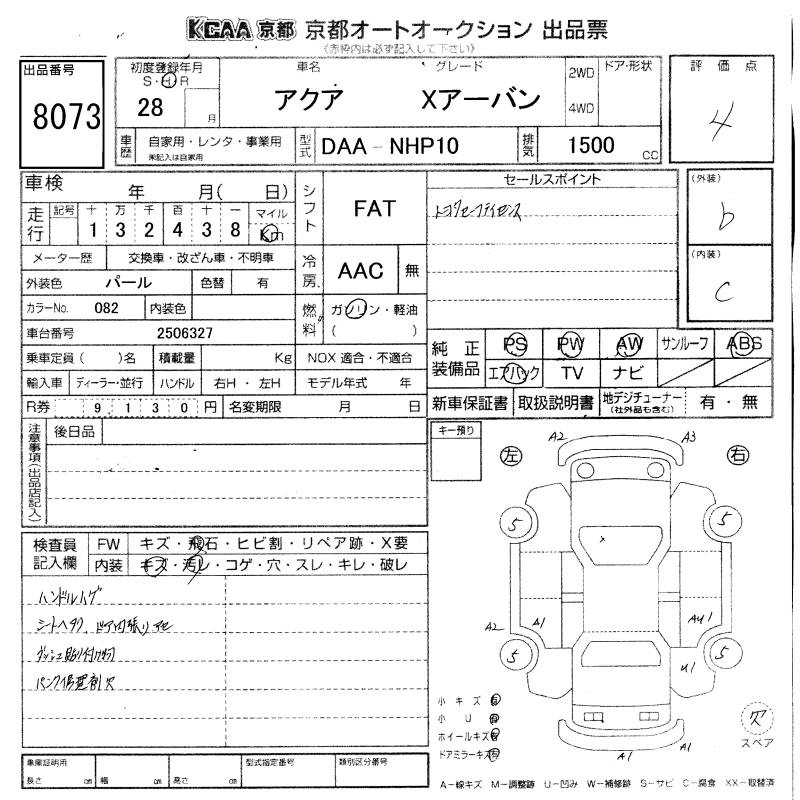 KCAA 京都 京都オートオークション 出品票
(赤枠内は必ず記入して下さい)
出品番号
8073
初度登録年月
S・H・R
28 月
車名
アクア
グレード
Xアーバン
2WD
4WD
ドア・形状
評価点
4
車歴
自家用・レンタ・事業用
未記入は自家用
型式
DAA-NHP10
排気
1500 CC
車検 年 月( 日)
走行
記号 十 万 千 百 十 一 マイル
1 3 2 4 3 8 Km
メーター歴 交換車・改ざん車・不明車
外装色 パール 色替 有
カラーNo. 082 内装色
車台番号 2506327
乗車定員 ( )名 積載量 Kg
輸入車 ディーラー・並行 ハンドル 右H・左H
R券 9,130円 名変期限 月 日
シフト
FAT
冷房
AAC 無
燃料
ガソリン・軽油
( )
NOX 適合・不適合
モデル年式 年
セールスポイント
トヨタセーフティセンス
(外装)
b
(内装)
C
純正装備品
PS PW AW サンルーフ ABS
エアバック TV ナビ
新車保証書 取扱説明書 地デジチューナー
(社外品も含む)
有・無
注意事項(出品店記入)
後日品
検査員記入欄
FW キズ・飛石・ヒビ割・リペア跡・X要
内装 キズ・汚レ・コゲ・穴・スレ・キレ・破レ
ハンドルハゲ
シートヘタリ
ダッシュ貼り付け物
パンク修理剤欠
キー預り
左
右
A2
A3
5
5
A2
A1
AU1
U1
5
5
A1
A1
小キズ 有
小U 有
ホイールキズ 有
ドアミラーキズ 有
欠
スペア
車庫証明用
長さ cm 幅 cm 高さ cm
型式指定番号
類別区分番号
A-線キズ M-調整跡 U-凹み W-補修跡 S-サビ C-腐食 XX-取替済